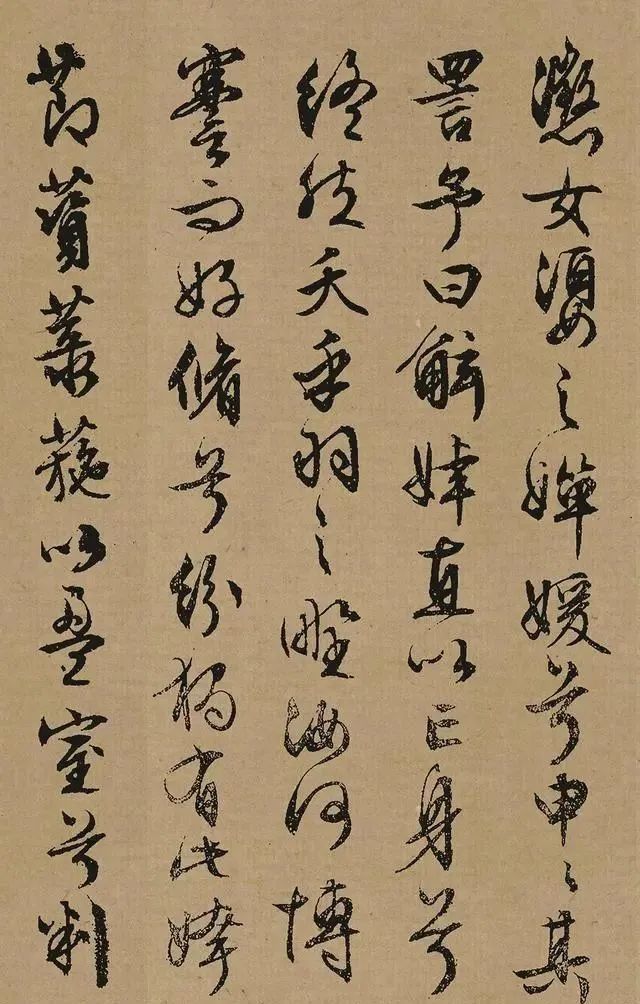 懲女媭之嬋媛兮申〻其
詈予曰鯀婞直以亡身兮
終然夭乎羽之野汝何博
謇而好脩兮紛獨有此姱
節薋菉葹以盈室兮判